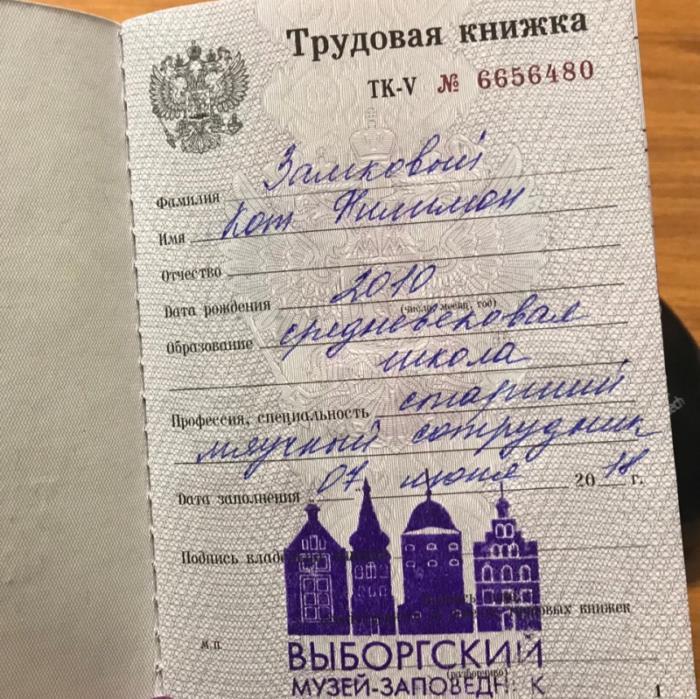 Трудовая книжка
ТК-V № 6656480
Фамилия Замковый
Имя Кот Филимон
Отчество
Дата рождения 2010
(число, месяц, год)
Образование средневековая
школа
Профессия, специальность старший
мяучный сотрудник
Дата заполнения 07 июня 2018 г.
Подпись влад
овых книжек
М.П.
ВЫБОРГСКИЙ
(разборчиво)
МУЗЕЙ-ЗАПОВЕДН К